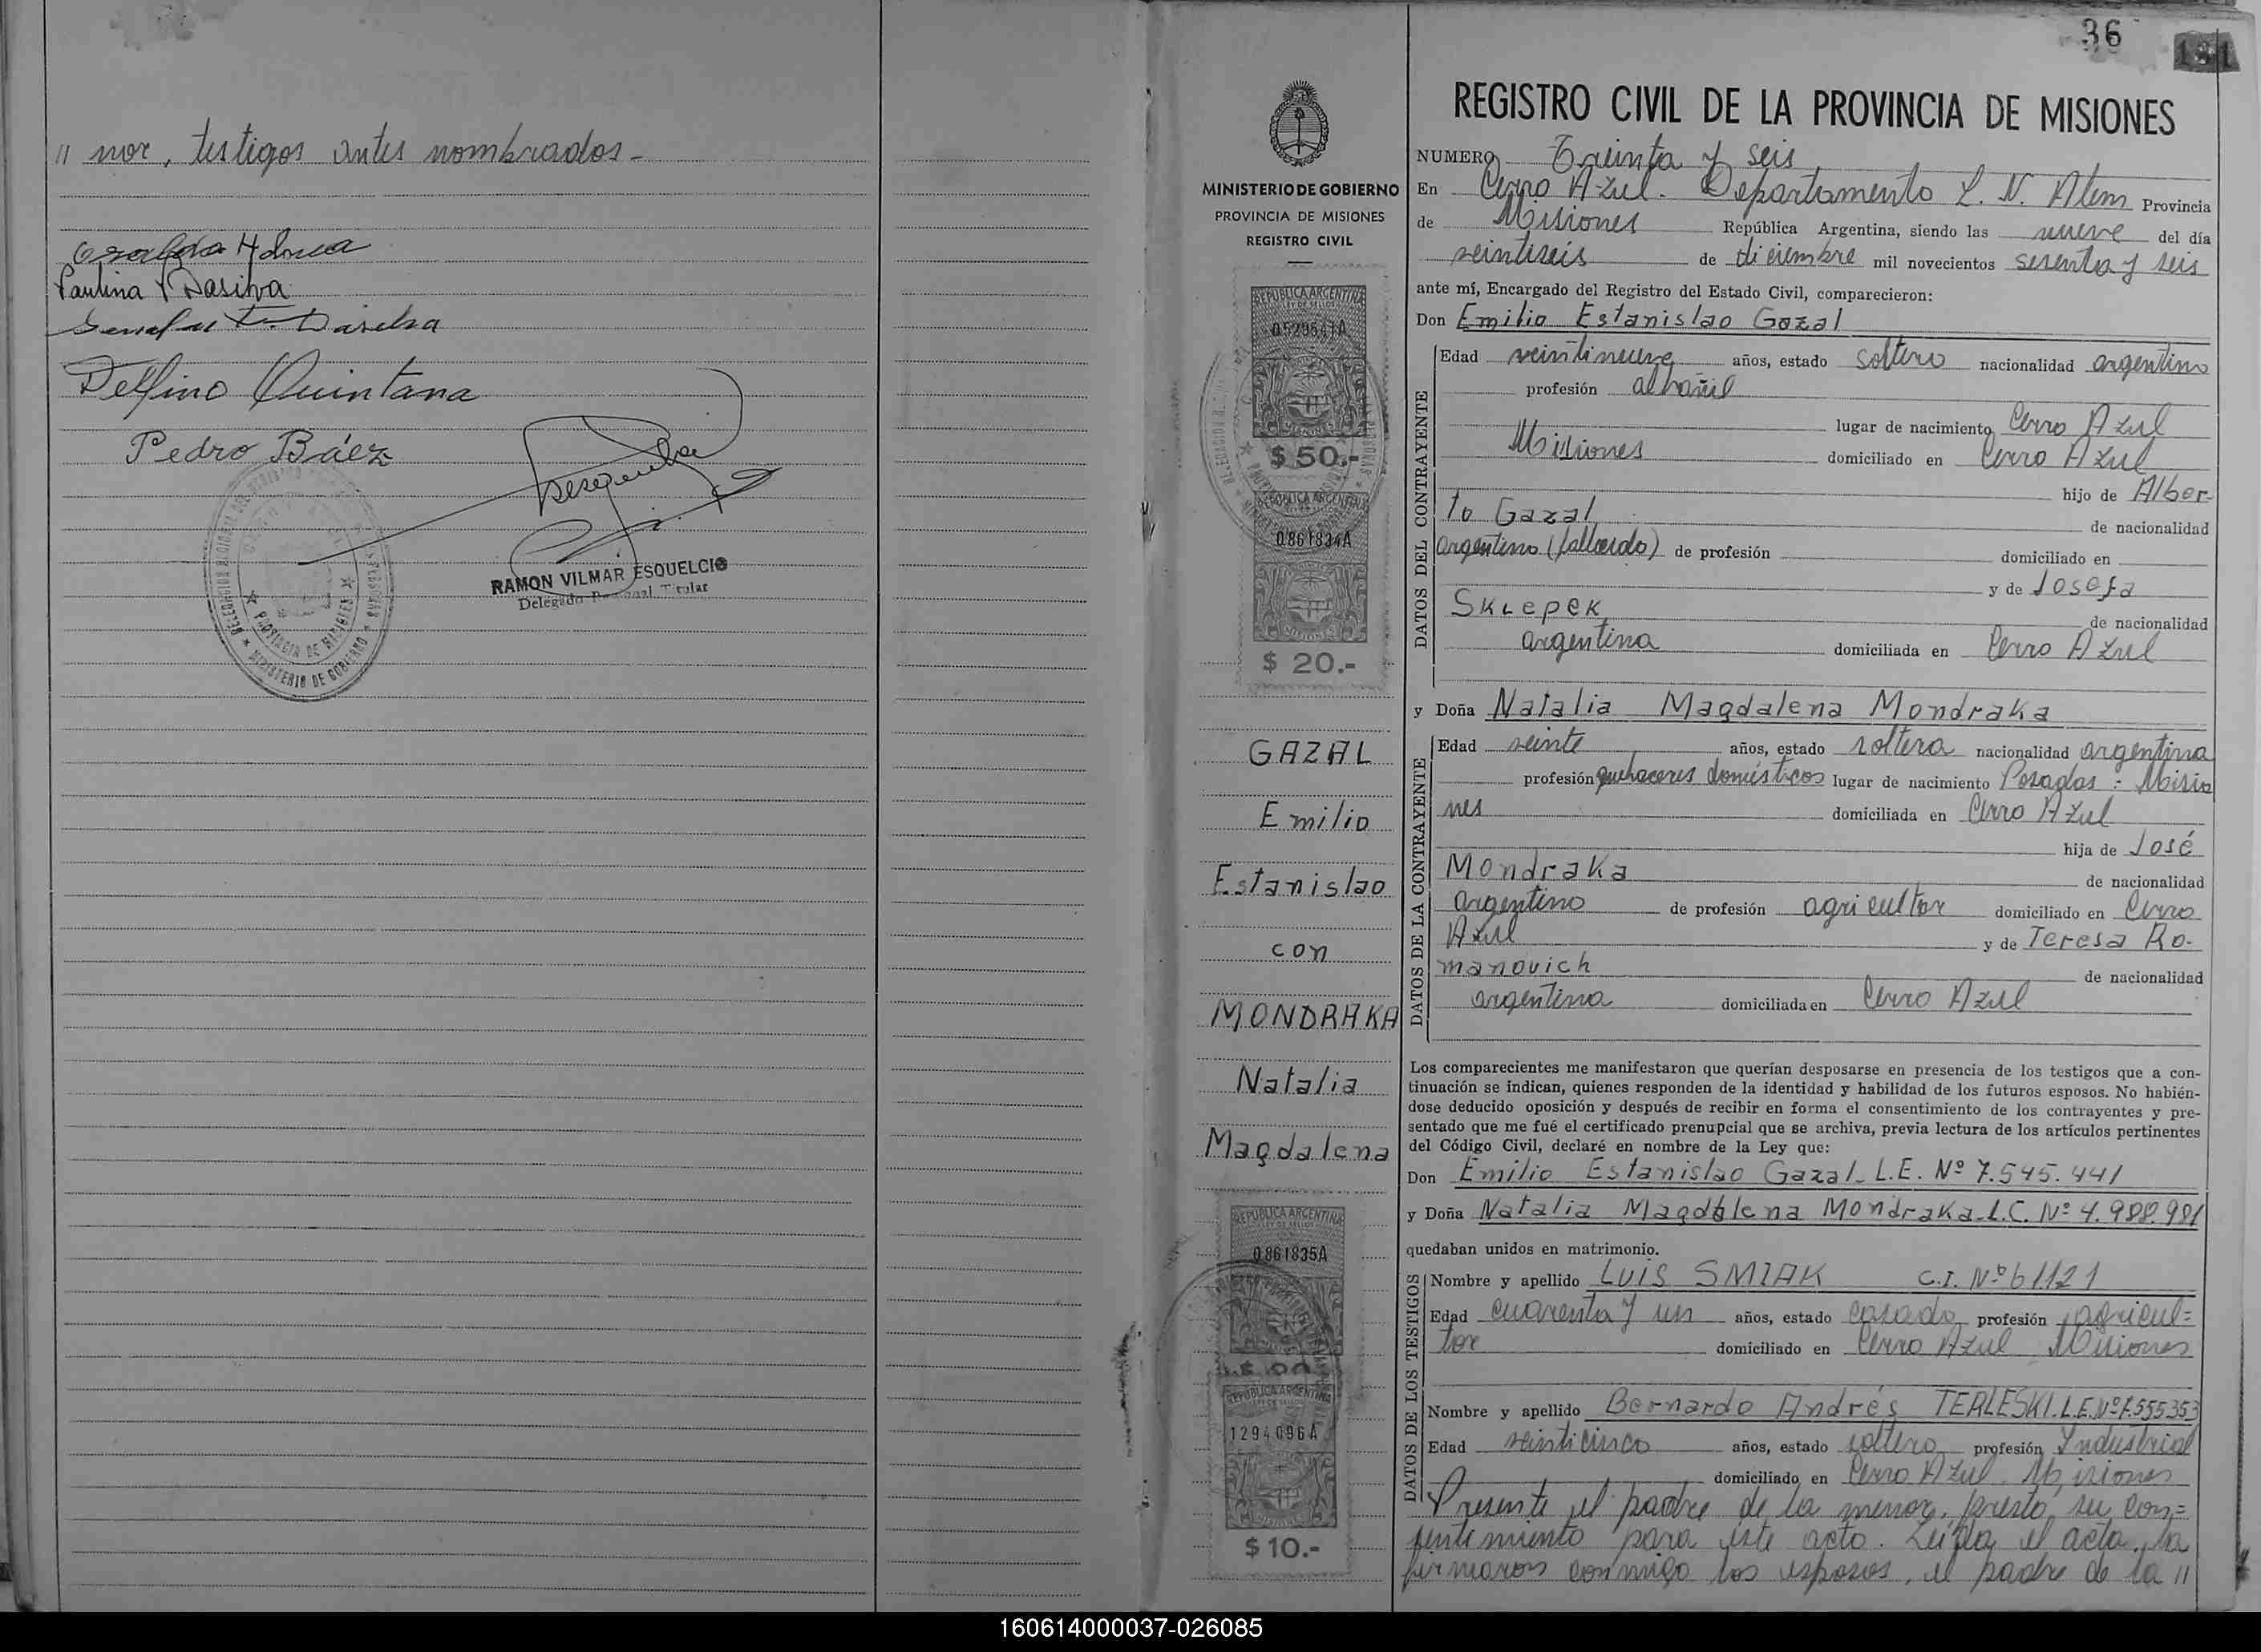 // nor, testigos antes nombrados -
Paulina V Dasilva
Delfino Quintana
Pedro Báez
RAMON VILMAR ESQUELCIO
Delegado Titular
PROVINCIA DE MISIONES
MINISTERIO DE GOBIERNO
36
REGISTRO CIVIL DE LA PROVINCIA DE MISIONES
MINISTERIO DE GOBIERNO
PROVINCIA DE MISIONES
REGISTRO CIVIL
REPUBLICA ARGENTINA
LEY DE SELLOS
$ 50.-
REPUBLICA ARGENTINA
0861834A
MISIONES
$ 20.-
GAZAL
Emilio
Estanislao
con
MONDRAKA
Natalia
Magdalena
REPUBLICA ARGENTINA
LEY DE SELLOS
0861835A
REPUBLICA ARGENTINA
1294096A
$ 10.-
NUMERO Treinta y seis
En Cerro Azul. Departamento L. N. Alem Provincia
de Misiones República Argentina, siendo las nueve del día
veintiseis de diciembre mil novecientos sesenta y seis
ante mí, Encargado del Registro del Estado Civil, comparecieron:
Don Emilio Estanislao Gazal
DATOS DEL CONTRAYENTE
Edad veintinueve años, estado soltero nacionalidad argentino
profesión albañil
lugar de nacimiento Cerro Azul
Misiones domiciliado en Cerro Azul
hijo de Alber-
to Gazal de nacionalidad
argentino (fallecido) de profesión domiciliado en
y de Josefa
Sklepek de nacionalidad
argentina domiciliada en Cerro Azul
y Doña Natalia Magdalena Mondraka
DATOS DE LA CONTRAYENTE
Edad veinte años, estado soltera nacionalidad argentina
profesión quehaceres domésticos lugar de nacimiento Posadas - Misio
nes domiciliada en Cerro Azul
hija de José
Mondraka de nacionalidad
argentino de profesión agricultor domiciliado en Cerro
Azul y de Teresa Ro-
manovich de nacionalidad
argentina domiciliada en Cerro Azul
Los comparecientes me manifestaron que querían desposarse en presencia de los testigos que a con-
tinuación se indican, quienes responden de la identidad y habilidad de los futuros esposos. No habién-
dose deducido oposición y después de recibir en forma el consentimiento de los contrayentes y pre-
sentado que me fué el certificado prenupcial que se archiva, previa lectura de los artículos pertinentes
del Código Civil, declaré en nombre de la Ley que:
Don Emilio Estanislao Gazal. L.E. Nº 7.545.441
y Doña Natalia Magdalena Mondraka. L.C. Nº 4.988.981
quedaban unidos en matrimonio.
DATOS DE LOS TESTIGOS
Nombre y apellido LUIS SMIAK C.I. Nº 61121
Edad cuarenta y un años, estado casado profesión agricul=
tor domiciliado en Cerro Azul Misiones
Nombre y apellido Bernardo Andrés TERLESKI. L.E. Nº 7.555353
Edad veinticinco años, estado soltero profesión Industrial
domiciliado en Cerro Azul. Misiones
Presente el padre de la menor, presto su con=
sentimiento para este acto. Leida el acta, la
firmaron conmigo los esposos, el padre de la //
160614000037-026085